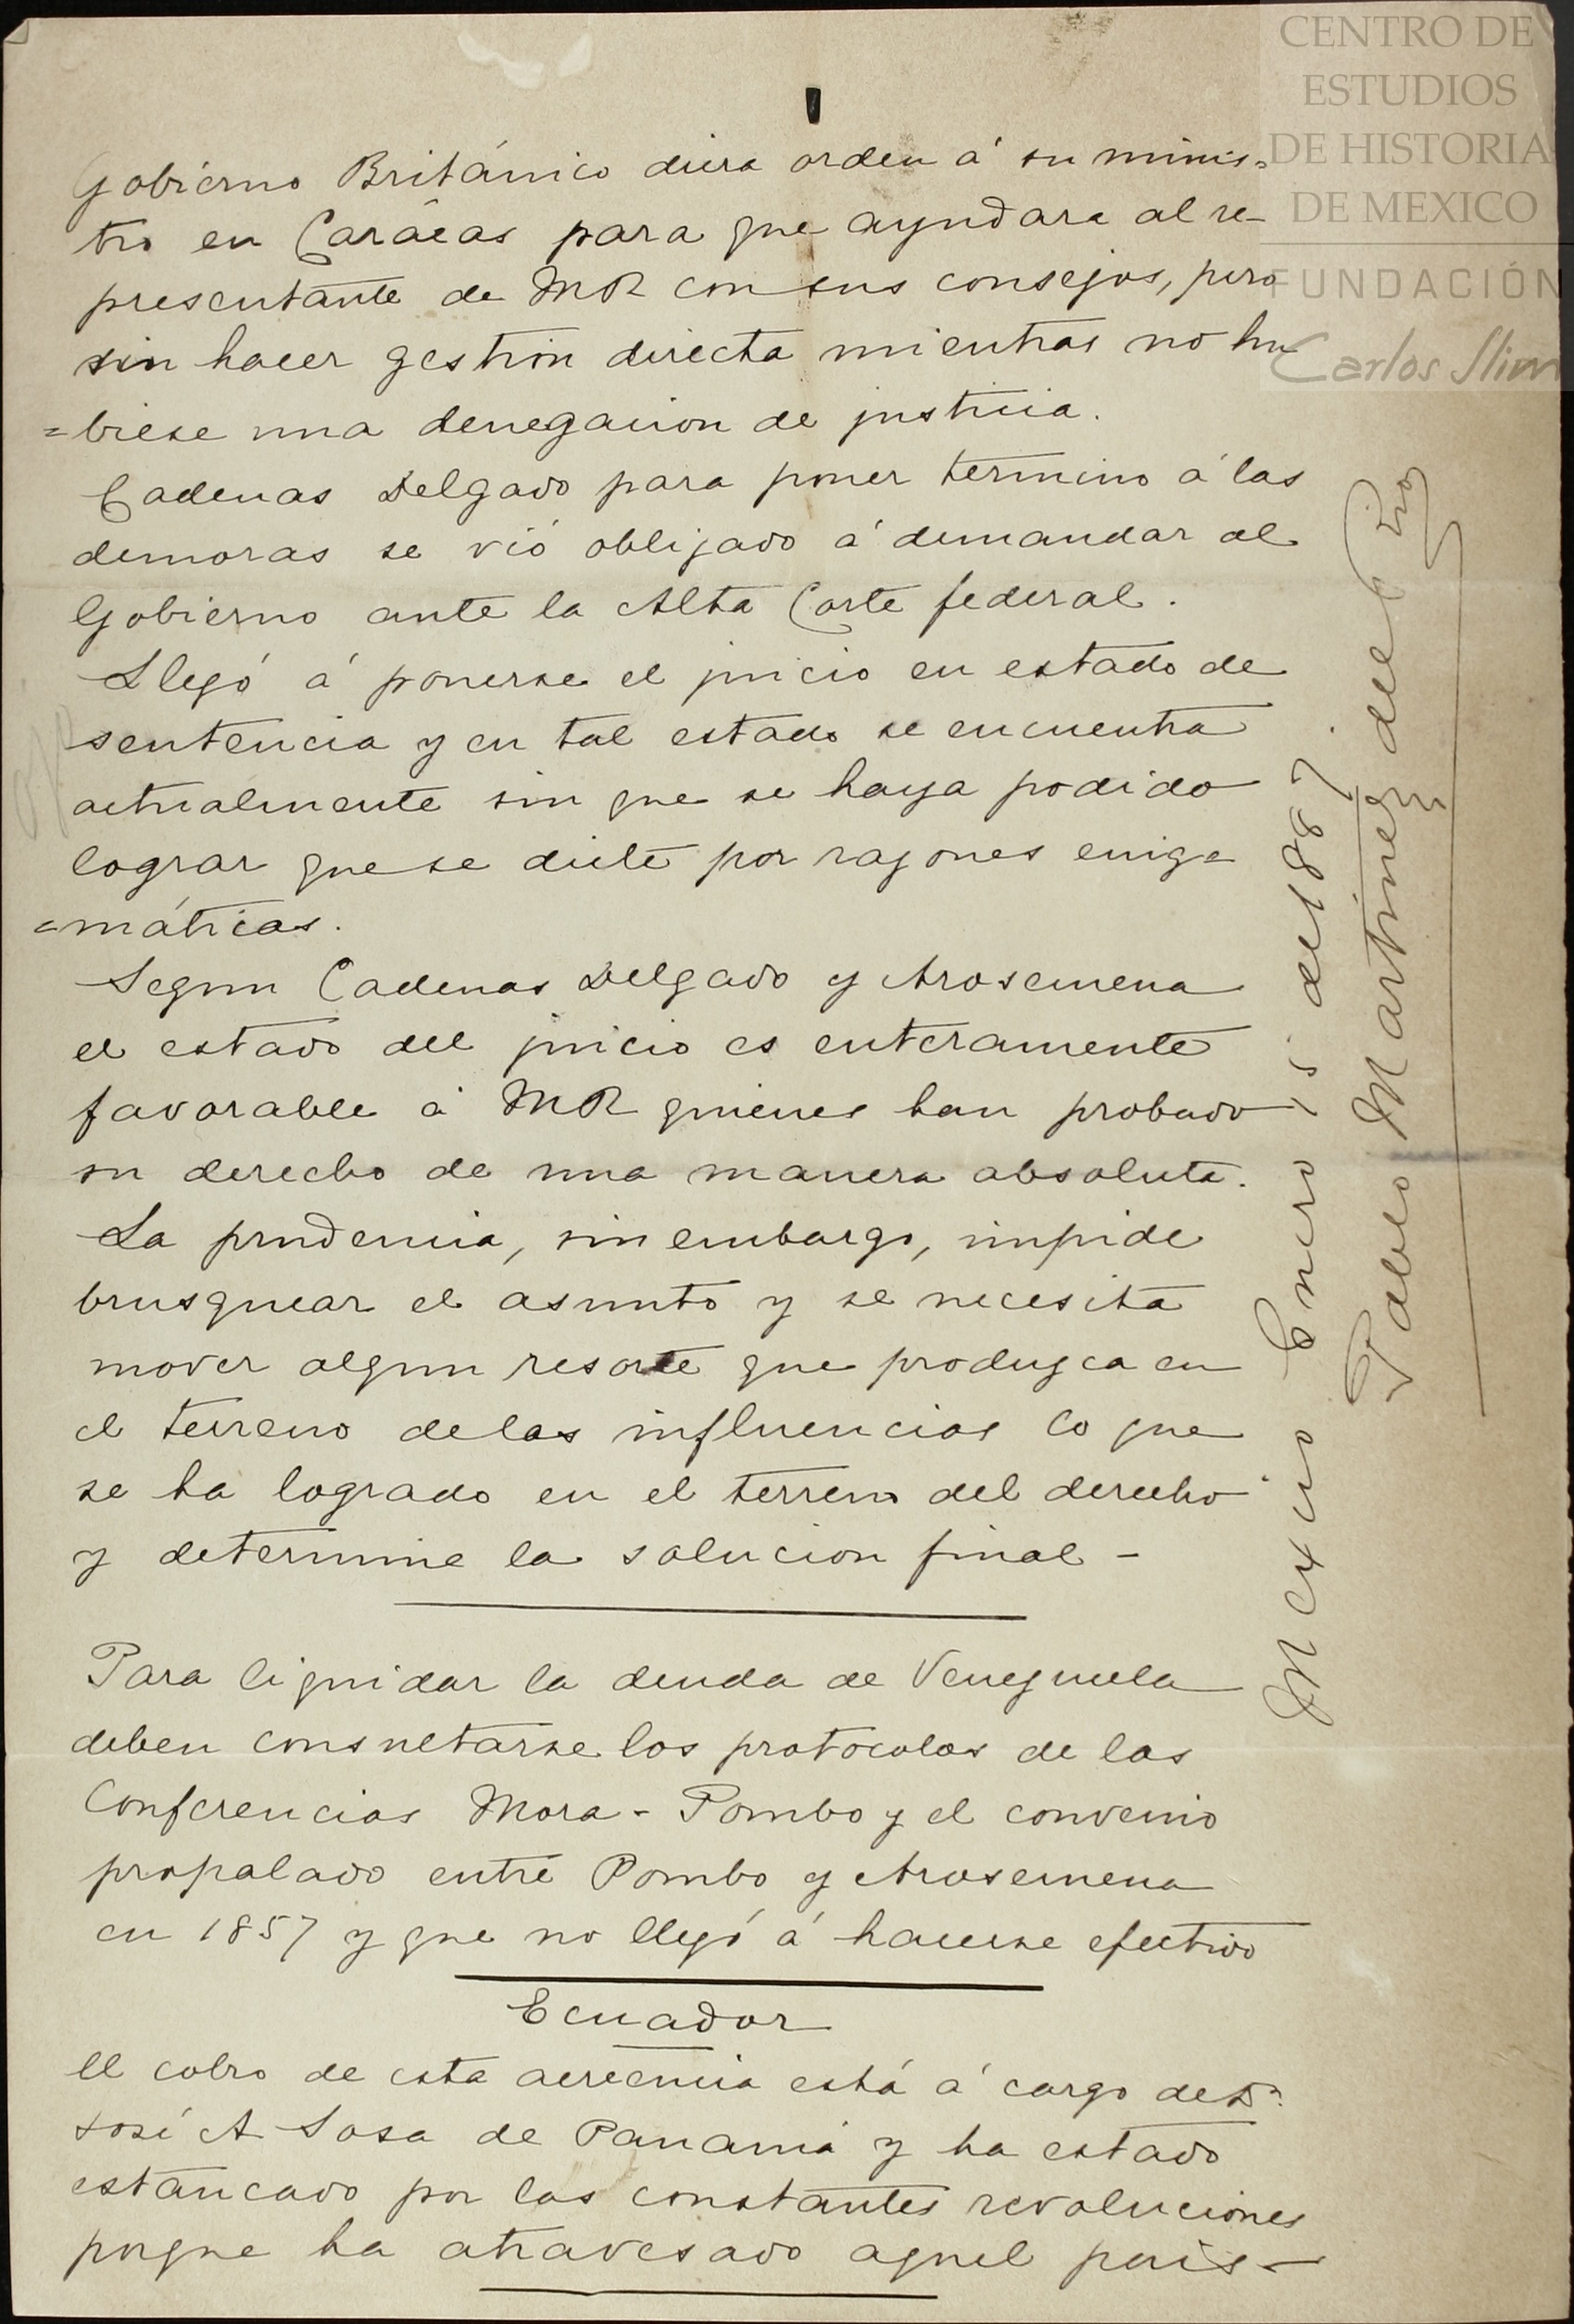 Gobierno Británico diera orden á su minis=
tro en Carácas para que ayudara al re-
presentante de MR con sus consejos, pero
sin hacer gestion directa mientras no hu
=biese una denegacion de justicia.
Cadenas Delgado para poner termino á las
demoras se vió oblijado á demandar al
Gobierno ante la Alta Corte federal.
Llegó á ponerse el juicio en estado de
sentencia y en tal estado se encuentra
actualmente sin que se haya podido
lograr que se dicte por razones enig=
=máticas.
Segun Cadenas Delgado y Arosemena
el estado del juicio es enteramente
favorable á MR quienes han probado
su derecho de una manera absoluta.
La prudencia, sin embargo, impide
brusquear el asunto y se necesita
mover algun resorte que produzca en
el terreno de las influencias lo que
se ha logrado en el terreno del derecho
y determine la solucion final -
Para liquidar la deuda de Venezuela
deben consultarse los protocolos de las
Conferencias Mora - Pombo y el convenio
propalado entre Pombo y Arosemena
en 1857 y que no llegó á hacerse efectivo
Ecuador
El cobro de esta acreencia está á cargo de Dn
José A Sosa de Panamá y ha estado
estancado por las constantes revoluciones
porque ha atravesado aquel pais -
Mexico Enero 15 de 1887.
Pablo Martinez del Rio
CENTRO DE
ESTUDIOS
DE HISTORIA
DE MEXICO
FUNDACIÓN
Carlos Slim